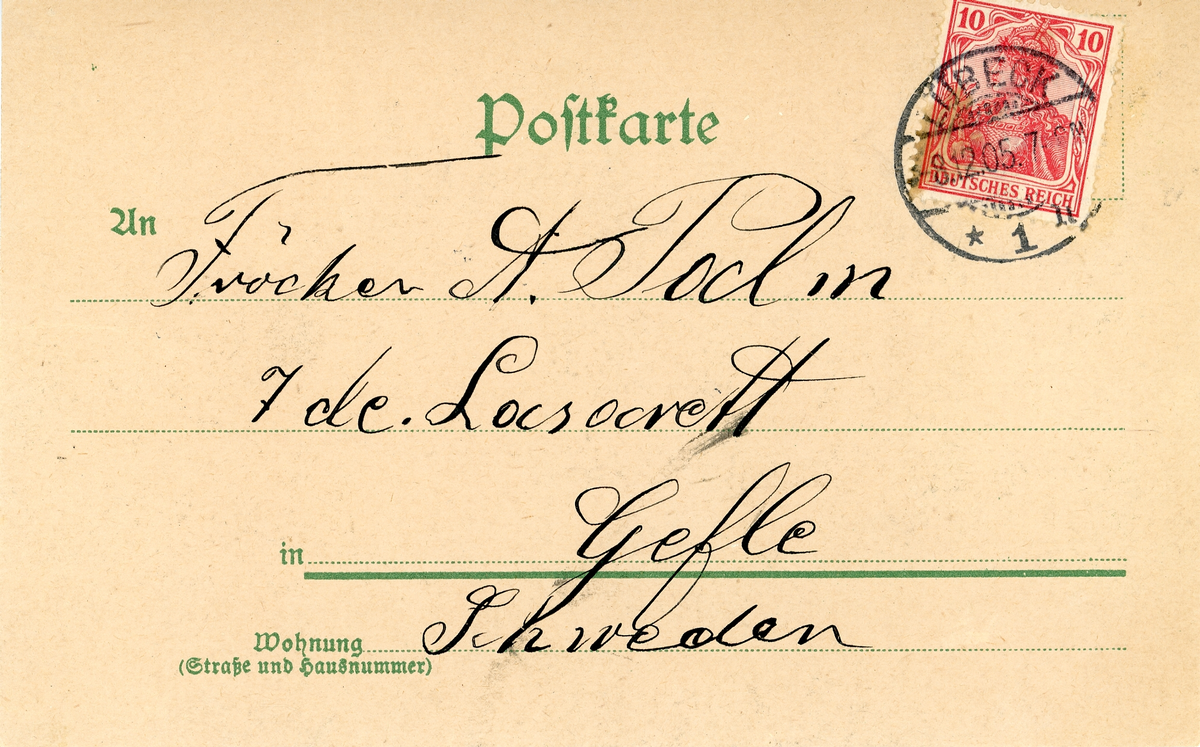 10 10
DEUTSCHES REICH
LÜBECK
12.05.7
* 1
Postkarte
An
Fröcken A. Podlin
7 de. Lasarett
in Gefle
Wohnung Schweden
(Straße und Hausnummer)